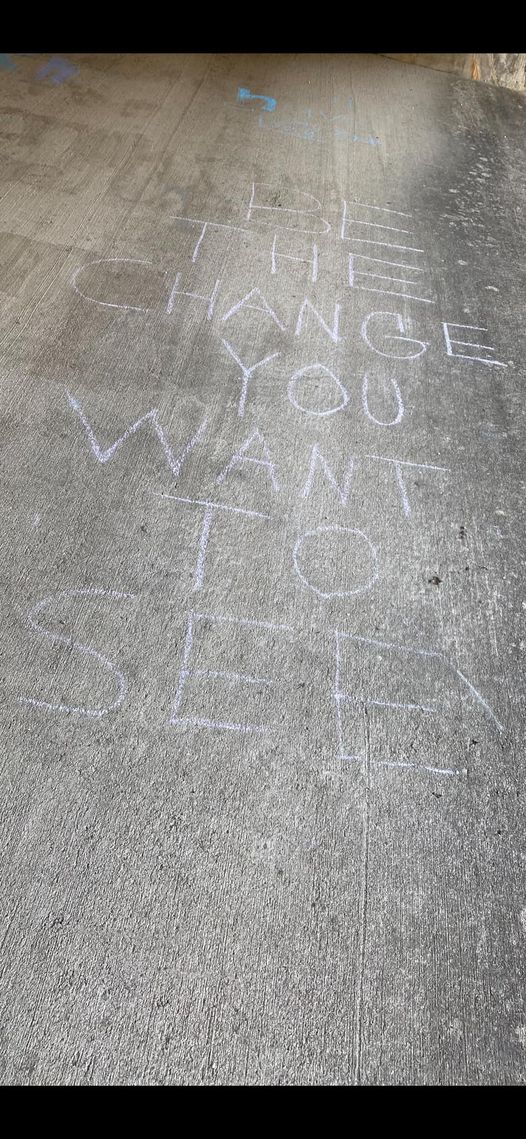 BE
THE
CHANGE
YOU
WANT
TO
SEE